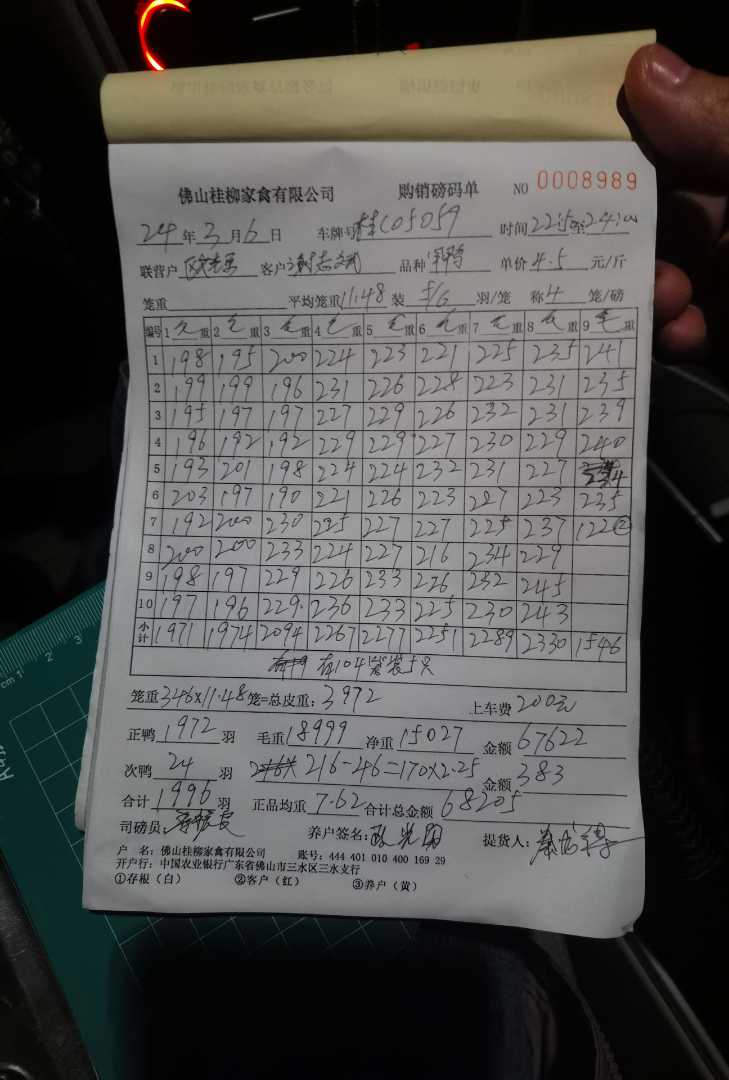 佛山桂柳家禽有限公司 购销磅码单 NO 0008989
24年3月6日 车牌号桂C05059 时间22:5至24:00
联营户 客户谢志斌 品种 单价4.5元/斤
笼重 平均笼重11.48 装5/6羽/笼 称4笼/磅
编号 1毛重 2毛重 3毛重 4毛重 5毛重 6毛重 7毛重 8毛重 9毛重
1 198 195 200 224 223 221 225 235 241
2 199 199 196 231 226 228 223 231 235
3 195 197 197 227 229 226 232 231 239
4 196 192 192 229 229 227 230 229 240
5 193 201 198 224 224 232 231 227 234
6 203 197 190 221 226 223 227 223 235
7 192 200 230 225 227 227 225 237 122②
8 200 200 233 224 227 216 234 229
9 198 197 229 226 233 226 232 245
10 197 196 229 236 233 225 230 243
小计 1971 1974 2094 2267 2277 2251 2289 2330 1546
有104笼装5只
笼重346×11.48笼=总皮重:3972 上车费200元
正鸭1972羽 毛重18999 净重15027 金额67622
次鸭24羽 216-46=170×2.25 金额383
合计1996羽 正品均重7.62 合计总金额68205
司磅员: 养户签名: 提货人:
户 名:佛山桂柳家禽有限公司 账号:444 401 010 400 169 29
开户行:中国农业银行广东省佛山市三水区三水支行
①存根(白) ②客户(红) ③养户(黄)
cm 1 2 3